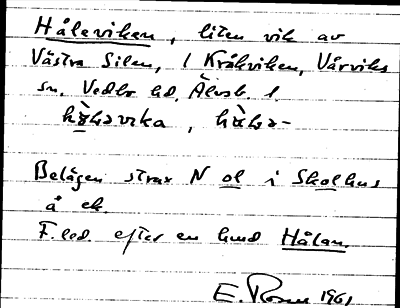 Håleviken, liten vik av
Västra Silen, / Kråkviken, Vårviks
sn. Vedbo hd. Älvsb. l.
Belägen strax N ol i Skolhus
å ek.
F.led. efter en hund Hålan.
E. Rosen 1961